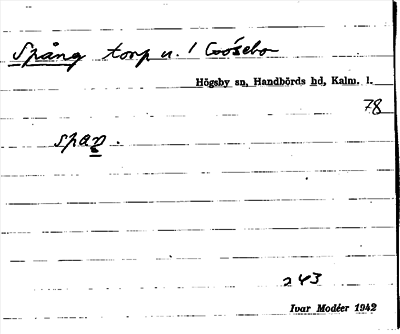 Spång torp u. 1 Gösebo
Högsby sn, Handbörds hd, Kalm. l.
78
spaŋ.
243
Ivar Modéer 1942